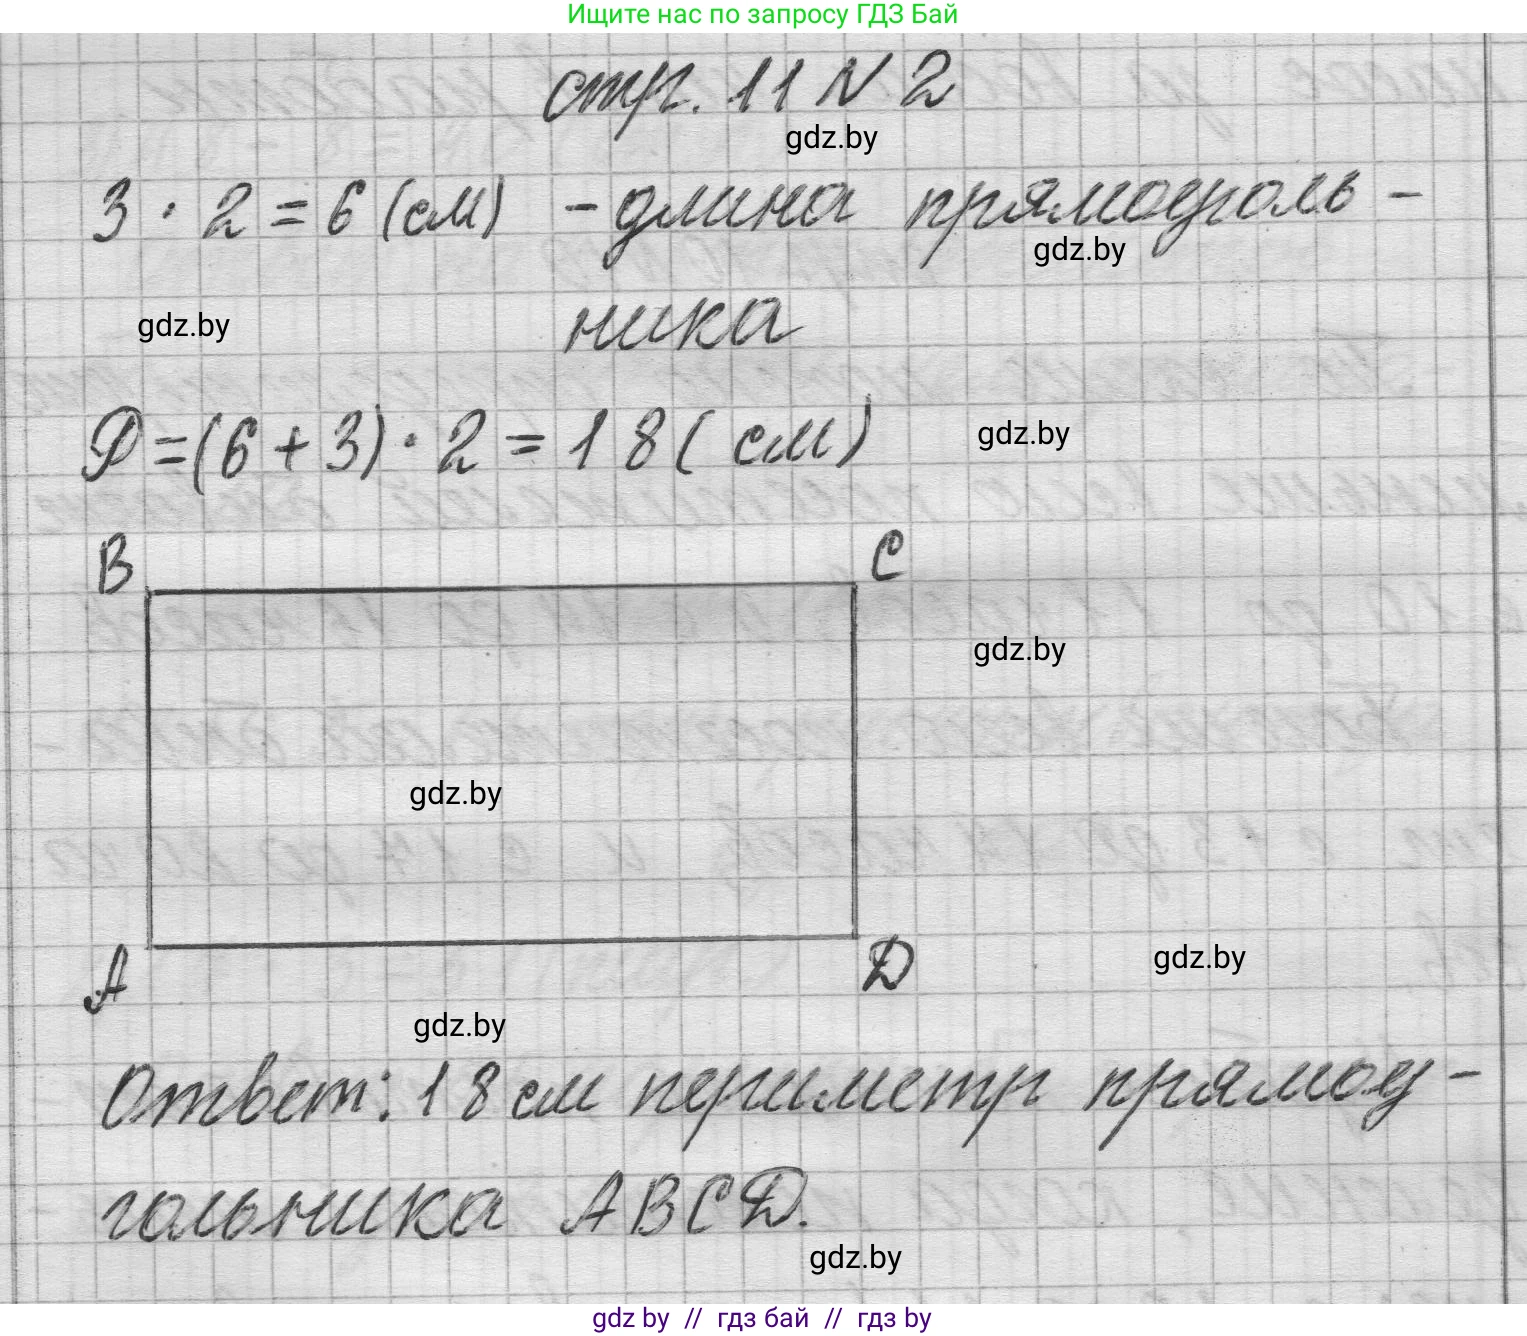 Ищите нас по запросу ГДЗ Бай
стр. 11 № 2
gdz.by
3 · 2 = 6 (см) - длина прямоуголь -
gdz.by
gdz.by
ника
P = (6 + 3) · 2 = 18 ( см)
gdz.by
B
C
gdz.by
gdz.by
A
D
gdz.by
gdz.by
Ответ: 18 см периметр прямоу -
гольника ABCD.
gdz.by
gdz by // гдз бай // гдз by